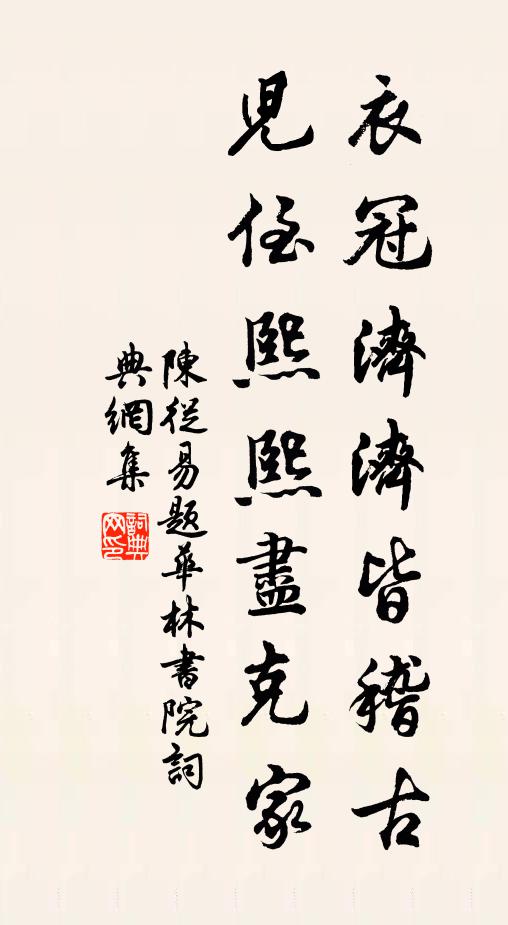 衣冠濟濟皆稽古
児侄熙熙盡克家
陳從易題華林書院詞
典網集
詞典
網印